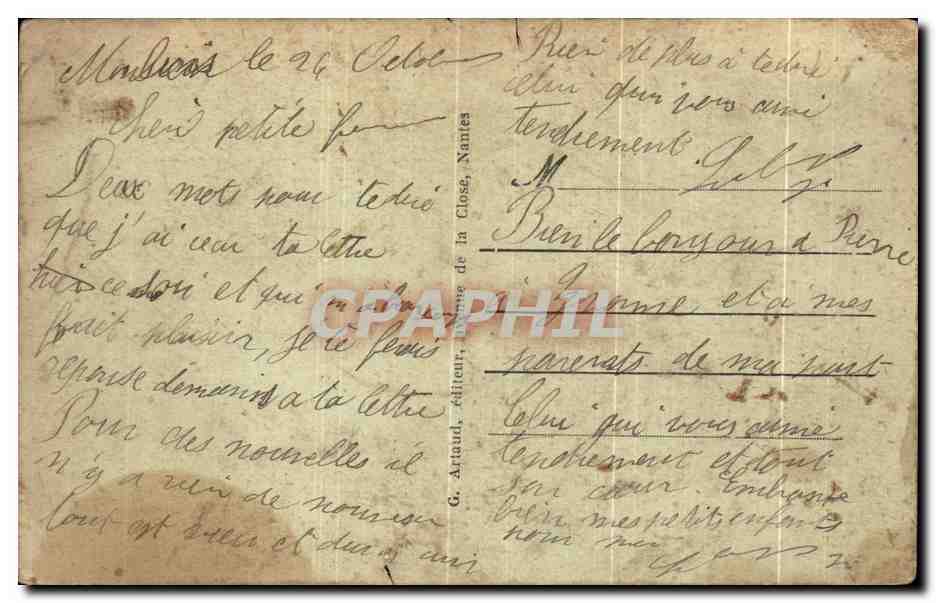 le 26 Octobre
Cheri petite
Deux mots pour te dire
que j'ai recu ta lettre
ce soir et qui m'a
fait plaisir, je te ferais
reponse demain a ta lettre
Pour des nouvelles il
n'y a rien de nouveau
tout est bien et
G. Artaud, éditeur, Avenue de la Close, Nantes
Rien de plus a te dire
celui qui vous aime
tendrement
M
Bien le bonjour a Pierre
et a mes
parents de ma part
Celui qui vous aime
tendrement et tout
son cœur. Embrasse
bien mes petits enfants
pour moi
CPAPHIL